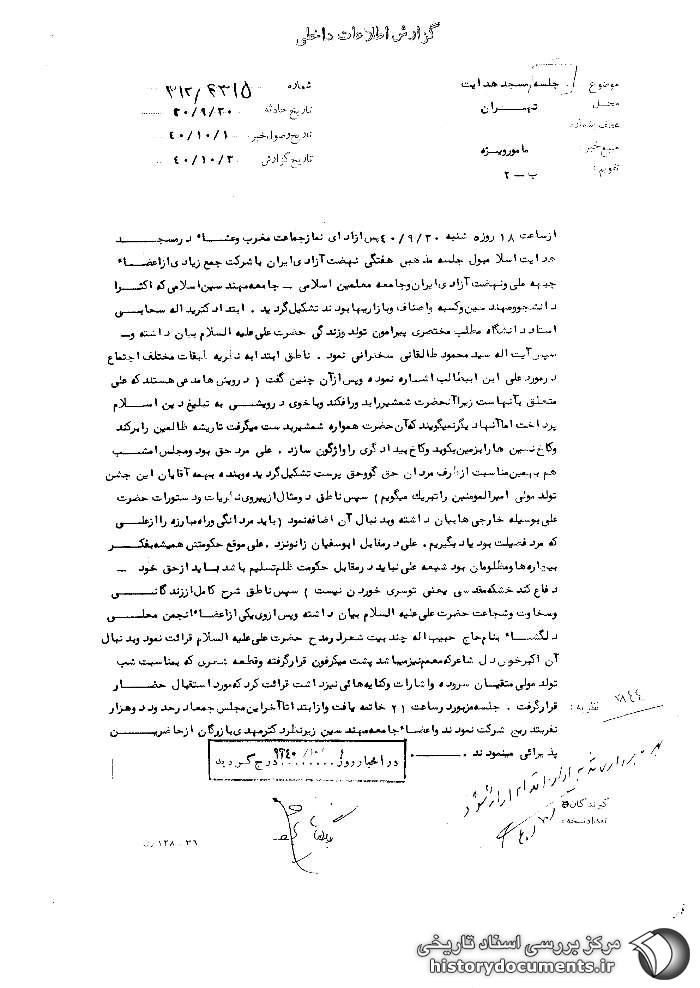 گزارش اطلاعات داخلی
موضوع : جلسه مسجد هدایت
شماره ۳۱۲/۶۳۱۵
محل تهران
تاریخ حادثه ۴۰/۹/۳۰
تاریخ وصول خبر ۴۰/۱۰/۱
منبع خبر : مامور ویژه
تاریخ گزارش ۴۰/۱۰/۳
تقویم : ب - ۲
از ساعت ۱۸ روز ۵ شنبه ۴۰/۹/۳۰ پس از ادای نماز جماعت مغرب و عشاء در مسجد
هدایت اسلامبول جلسه مذهبی هفتگی نهضت آزادی ایران با شرکت جمع زیادی از اعضاء
جبهه ملی و نهضت آزادی ایران و جامعه معلمین اسلامی - جامعه مهندسین اسلامی که اکثرا
دانشجو و مهندسین و کسبه و اصناف و بازاریها بودند تشکیل گردید . ابتدا دکتر یداله سحابی
استاد دانشگاه مطلب مختصری پیرامون تولد و زندگی حضرت علی علیه السلام بیان داشته و -
سپس آیت اله سید محمود طالقانی سخنرانی نمود . ناطق ابتدا به نظریه طبقات مختلف اجتماع
در مورد علی ابن ابیطالب اشاره نموده و پس از آن چنین گفت ( درویش ها مدعی هستند که علی
متعلق بآنهاست زیرا آنحضرت شمشیر را بدور افکند و با خوی درویشی به تبلیغ دین اسلام
پرداخت اما آنها دیگر نمیگویند که آن حضرت همواره شمشیر بدست میگرفت تا ریشه ظالمین را برکند
و کاخ نشین ها را بزمین بکوبد و کاخ بیدادگری را واژگون سازد . علی مرد حق بود و مجلس امشب
هم بهمین مناسبت از طرف مردان حق گو و حق پرست تشکیل گردیده و بنده بهمه آقایان این جشن
تولد مولی امیرالمومنین را تبریک میگویم ) سپس ناطق دو مثال از پیروی نظریات و دستورات حضرت
علی بوسیله خارجی ها بیان داشته و بدنبال آن اضافه نمود ( باید مردانگی و راه مبارزه را از علی
که مرد فضیلت بود یاد بگیریم . علی در مقابل ابوسفیان زانو نزد . علی موقع حکومتش همیشه بفکر
بیچاره ها و مظلومان بود شیعه علی نباید در مقابل حکومت ظلم تسلیم باشد باید از حق خود -
دفاع کند خشکه مقدسی یعنی توسری خوردن نیست ) سپس ناطق شرح کامل از زندگانی
و سخاوت و شجاعت حضرت علی علیه السلام بیان داشته و پس از وی یکی از اعضاء انجمن محلی
دلگشاء بنام حاج حبیب اله چند بیت شعر در مدح حضرت علی علیه السلام قرائت نمود و بدنبال
آن اکبر خوش دل شاعر که معمم نیز میباشد پشت میکرفون قرار گرفته و قطعه شعری که بمناسبت شب
تولد مولی متقیان سروده و اشارات و کنایه هائی نیز داشت قرائت کرد که مورد استقبال حضار
قرار گرفت . جلسه مزبور در ساعت ۲۱ خاتمه یافت و از ابتدا تا آخر این مجلس جمعا در حدود دو هزار
نفر بتدریج شرکت نمودند و اعضاء جامعه مهندسین زیر نظر دکتر مهدی بازرگان از حاضرین
پذیرائی مینمودند .
نظریه :
در اخبار روز درج گردید
گیرندگان
تعداد نسخه :
۱۲۸ - ۳۶
مرکز بررسی اسناد تاریخی
historydocuments.ir